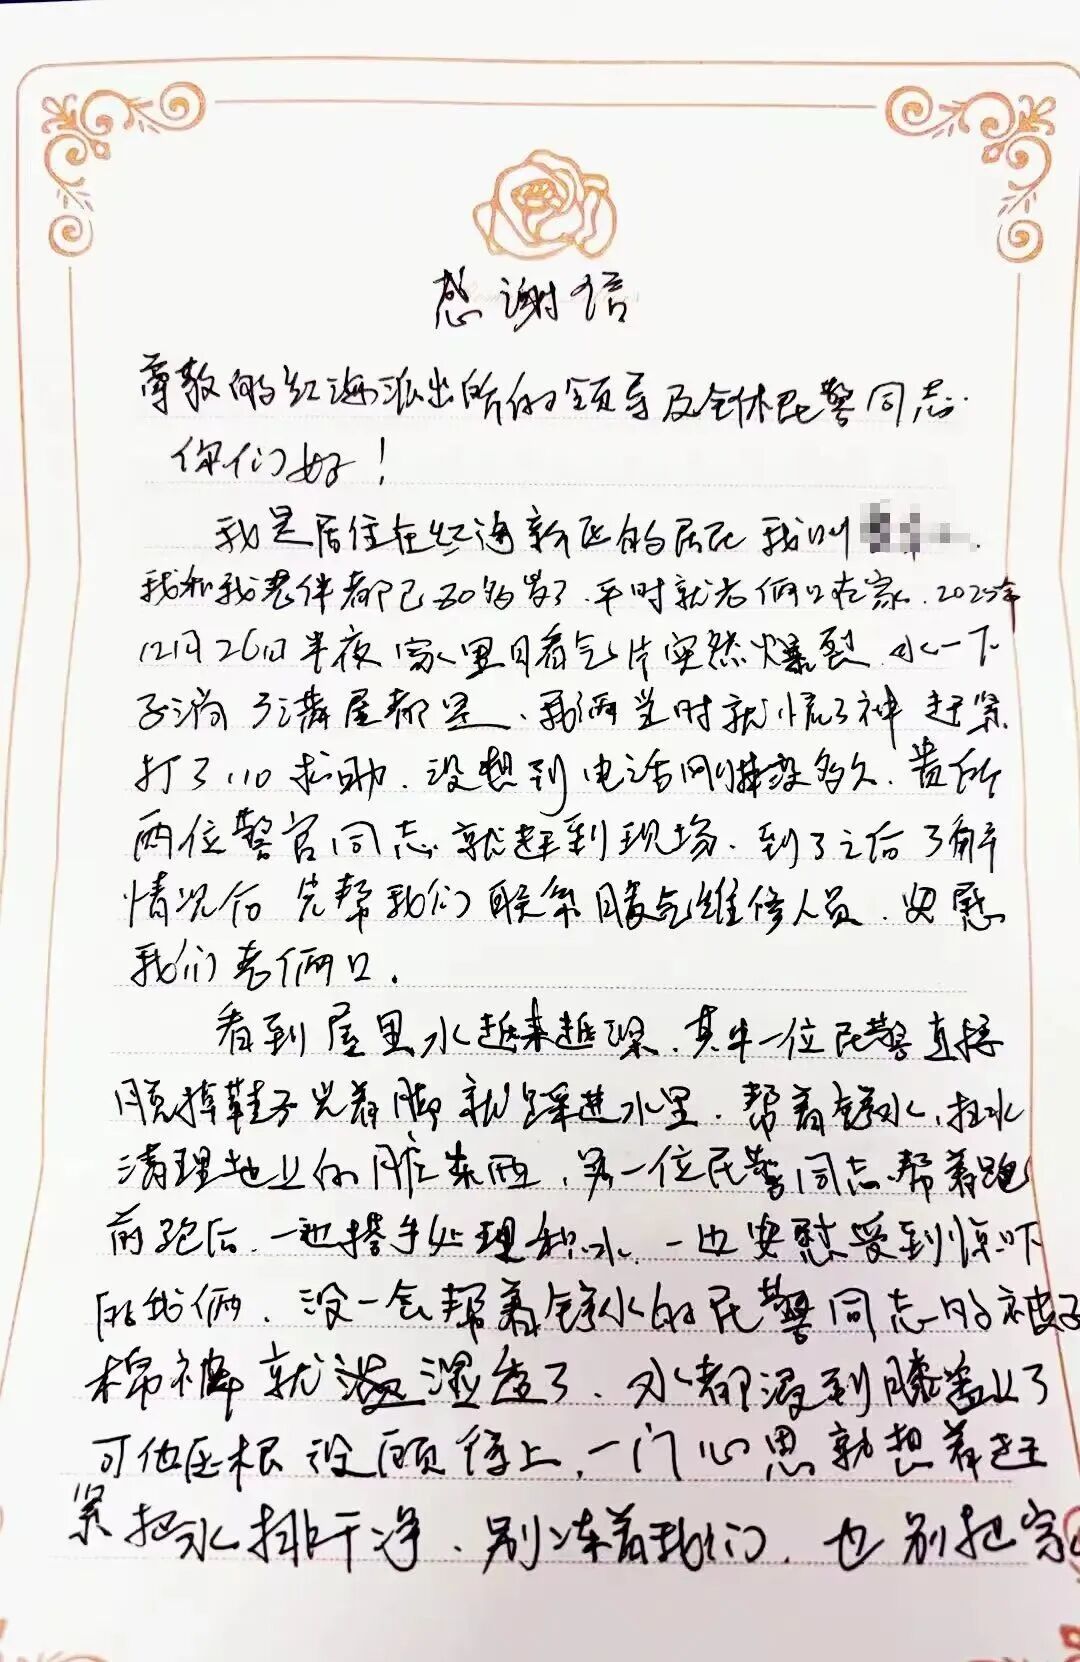 感谢信
尊敬的红海派出所的领导及全体民警同志
你们好！
我是居住在红海新区的居民 我叫
我和我老伴都已80多岁了．平时就老俩口在家．2025年
12月26日半夜家里暖气片突然爆裂．水一下
子淌了满屋都是、我俩当时就慌了神 赶紧
打了110求助．没想到电话刚挂没多久．贵所
两位警官同志就赶到现场．到了之后了解
情况后 先帮我们联系暖气维修人员．安慰
我们老俩口．
看到屋里水越来越深．其中一位民警直接
脱掉鞋子光着脚就踩进水里．帮着 水、扫水
清理地上的脏东西，另一位民警同志帮着跑
前跑后．一边搭手处理积水．一边安慰受到惊吓
的我俩．没一会帮着 水的民警同志的裤子
棉裤就 湿透了．水都没到膝盖上了
可他压根没顾得上，一门心思就想着赶
紧把水排干净．别冻着我们．也别把家